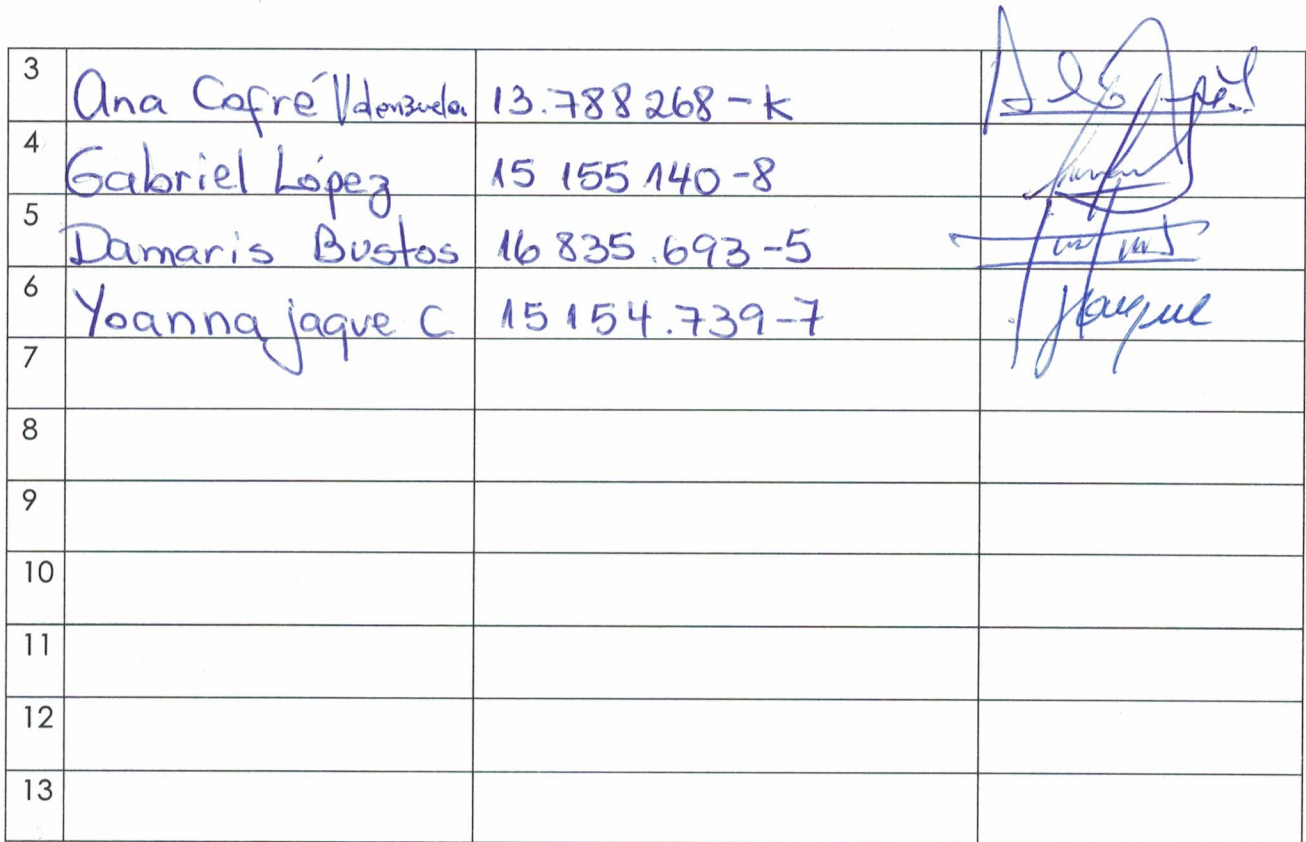 3 Ana Cofré Valenzuela 13.788268-k
4 Gabriel López 15 155 140-8
5 Damaris Bustos 16 835.693-5
6 Yoanna jaque C. 15 154.739-7 Jaque
7
8
9
10
11
12
13